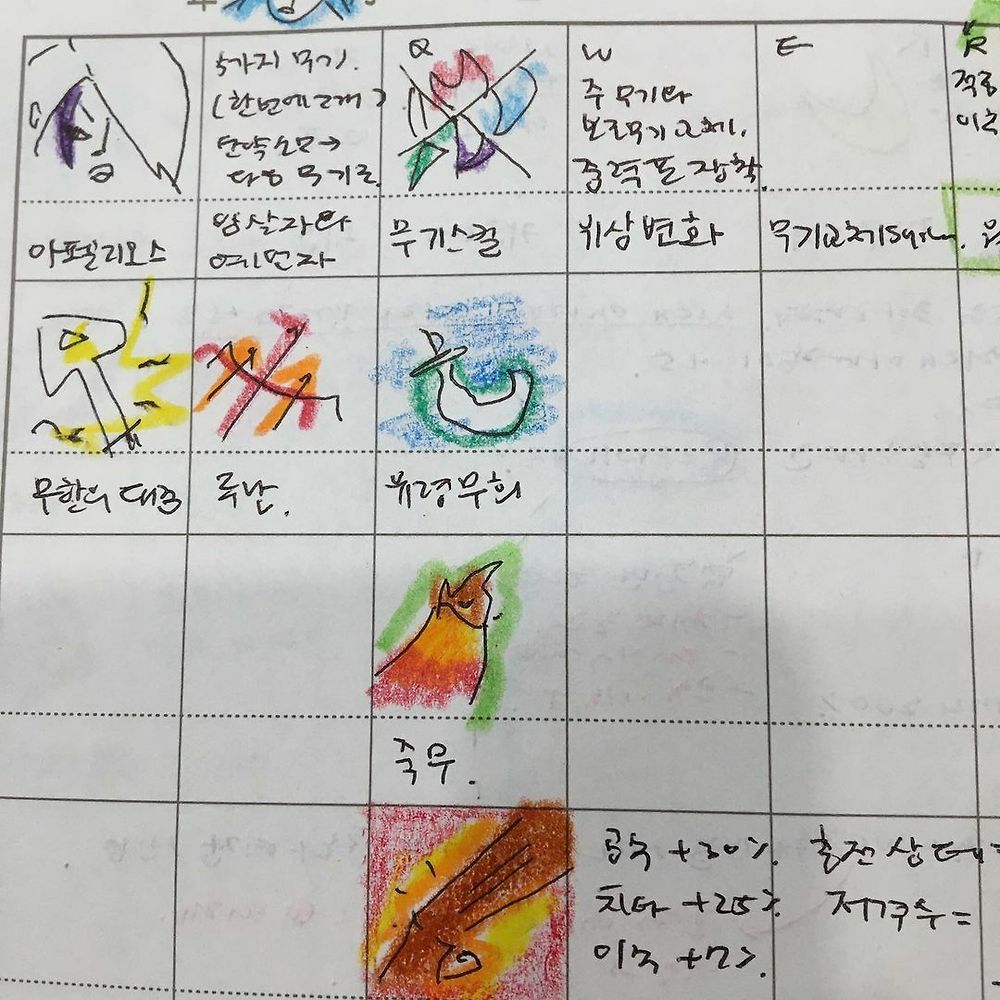 5가지 무기.
(한번에 2개)
탄약소모→
다음 무기로
Q
W
주 무기와
보조무기 교체.
중력포 장착.
E
R
아펠리오스
암살자와
예언자
무기스킬
위상변화
무기교체
무한의 대검
루난.
유령무희
죽무.
공속 +30%.
치타 +25%.
이속 +7%.
출전 상태